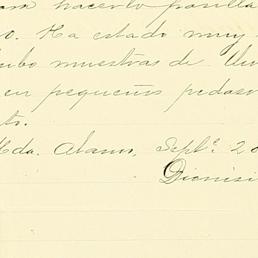 hacerlo posilla
o. Ha estado muy
hubo muestras de
en pequeños pedaso
to.
Hda. Alamo, Septe. 20
Dionisi